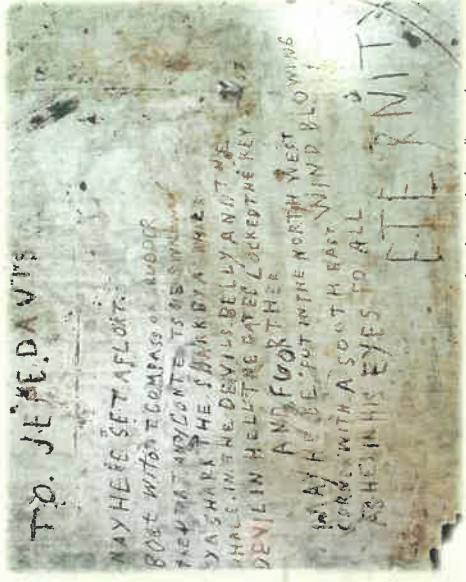 TO. JEHE. DAVIS
MAY HE BE SET AFLOTE.
BOAT WITOTE COMPASS OR RUDDER
THEN THAT AND CONTE TS BE SWALLOW
BY A SHARK THE SHARK BY A
WHALE. IN THE DEVILS BELLY AND THE
DEVIL IN HELL THE GATES LOCKED THE KEY
AND FUOR THER
MAY HE BE PUT IN THE NORTH WEST
CORNE WITH A SOOTH EAST WIND BLOWING
ASHE IN HIS EYES TO ALL
ETE RNITY